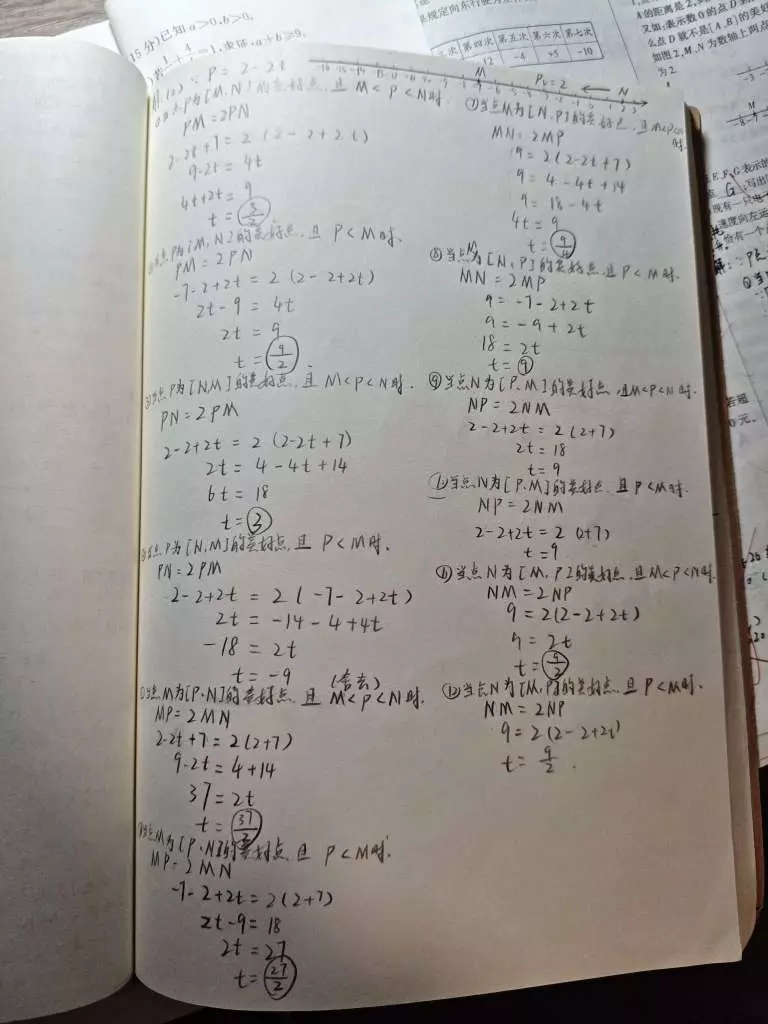 15分)已知a>0,b>0,
=1,求证:a+b≥9.
是规定向东行驶为
第四次 第五次 第六次 第七次
-12 -4 +5 -10
A的距离是2,
又如,表示数0的点D
么点D就不是[A,B]的美好
如图2,M,N为数轴上两点
为2
P = 2-2t
M P₀=2 N
P为[M,N]的美好点,且M<P<N时.
PM=2PN
2-2t+7=2(2-2+2t)
9-2t=4t
4t+2t=9
t=3/2
点P为[M,N]的美好点,且P<M时.
PM=2PN
-7-2+2t=2(2-2+2t)
2t-9=4t
2t=9
t=9/2
③当点P为[N,M]的美好点,且M<P<N时.
PN=2PM
2-2+2t=2(2-2t+7)
2t=4-4t+14
6t=18
t=3
点P为[N,M]的美好点,且P<M时.
PN=2PM
2-2+2t=2(-7-2+2t)
2t=-14-4+4t
-18=2t
t=-9 (舍去)
当点M为[P,N]的美好点,且M<P<N时.
MP=2MN
2-2t+7=2(2+7)
9-2t=4+14
37=2t
t=37/2
当点M为[P,N]的美好点,且P<M时.
MP=2MN
-7-2+2t=2(2+7)
2t-9=18
2t=27
t=27/2
⑦当点M为[N,P]的美好点,且M<P<N时.
MN=2MP
9=2(2-2t+7)
9=4-4t+14
9=18-4t
4t=9
t=9/4
⑧当点M为[N,P]的美好点,且P<M时.
MN=2MP
9=-7-2+2t
9=-9+2t
18=2t
t=9
⑨当点N为[P,M]的美好点,且M<P<N时.
NP=2NM
2-2+2t=2(2+7)
2t=18
t=9
当点N为[P,M]的美好点,且P<M时.
NP=2NM
2-2+2t=2(2+7)
t=9
⑪当点N为[M,P]的美好点,且M<P<N时.
NM=2NP
9=2(2-2+2t)
9=2t
t=9/2
⑫当点N为[M,P]的美好点,且P<M时.
NM=2NP
9=2(2-2+2t)
t=9/2.